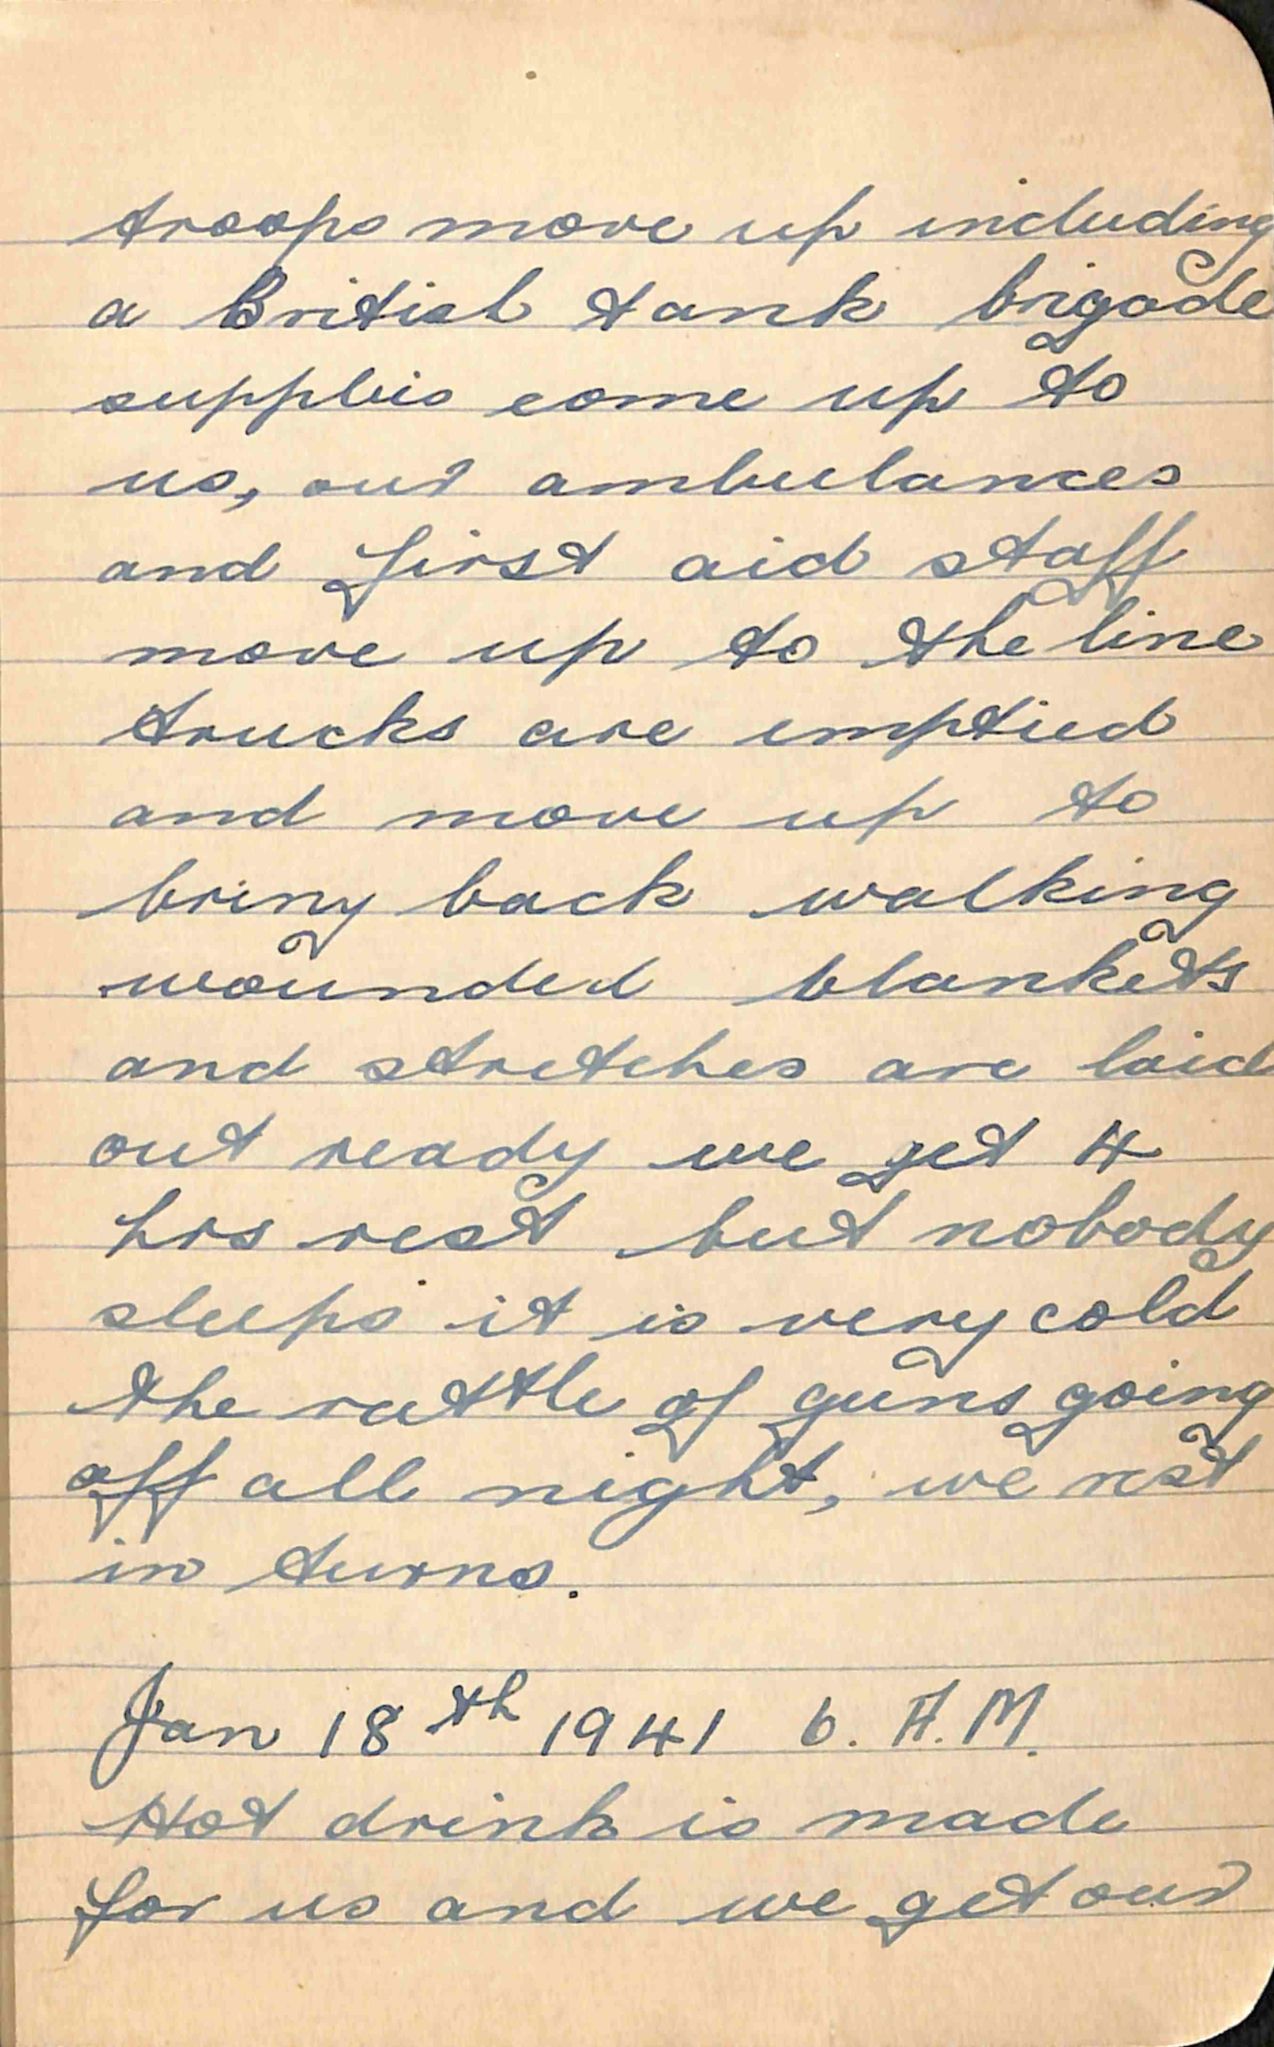 troops move up including
a British tank brigade
supplies come up to
us, our ambulances
and first aid staff
move up to the line
trucks are emptied
and move up to
bring back walking
wounded blankets
and stretches are laid
out ready we get 4
hrs rest but nobody
sleeps it is very cold
the rattle of guns going
off all night, we rest
in turns.
Jan 18th 1941 6. A.M.
Hot drink is made
for us and we get our